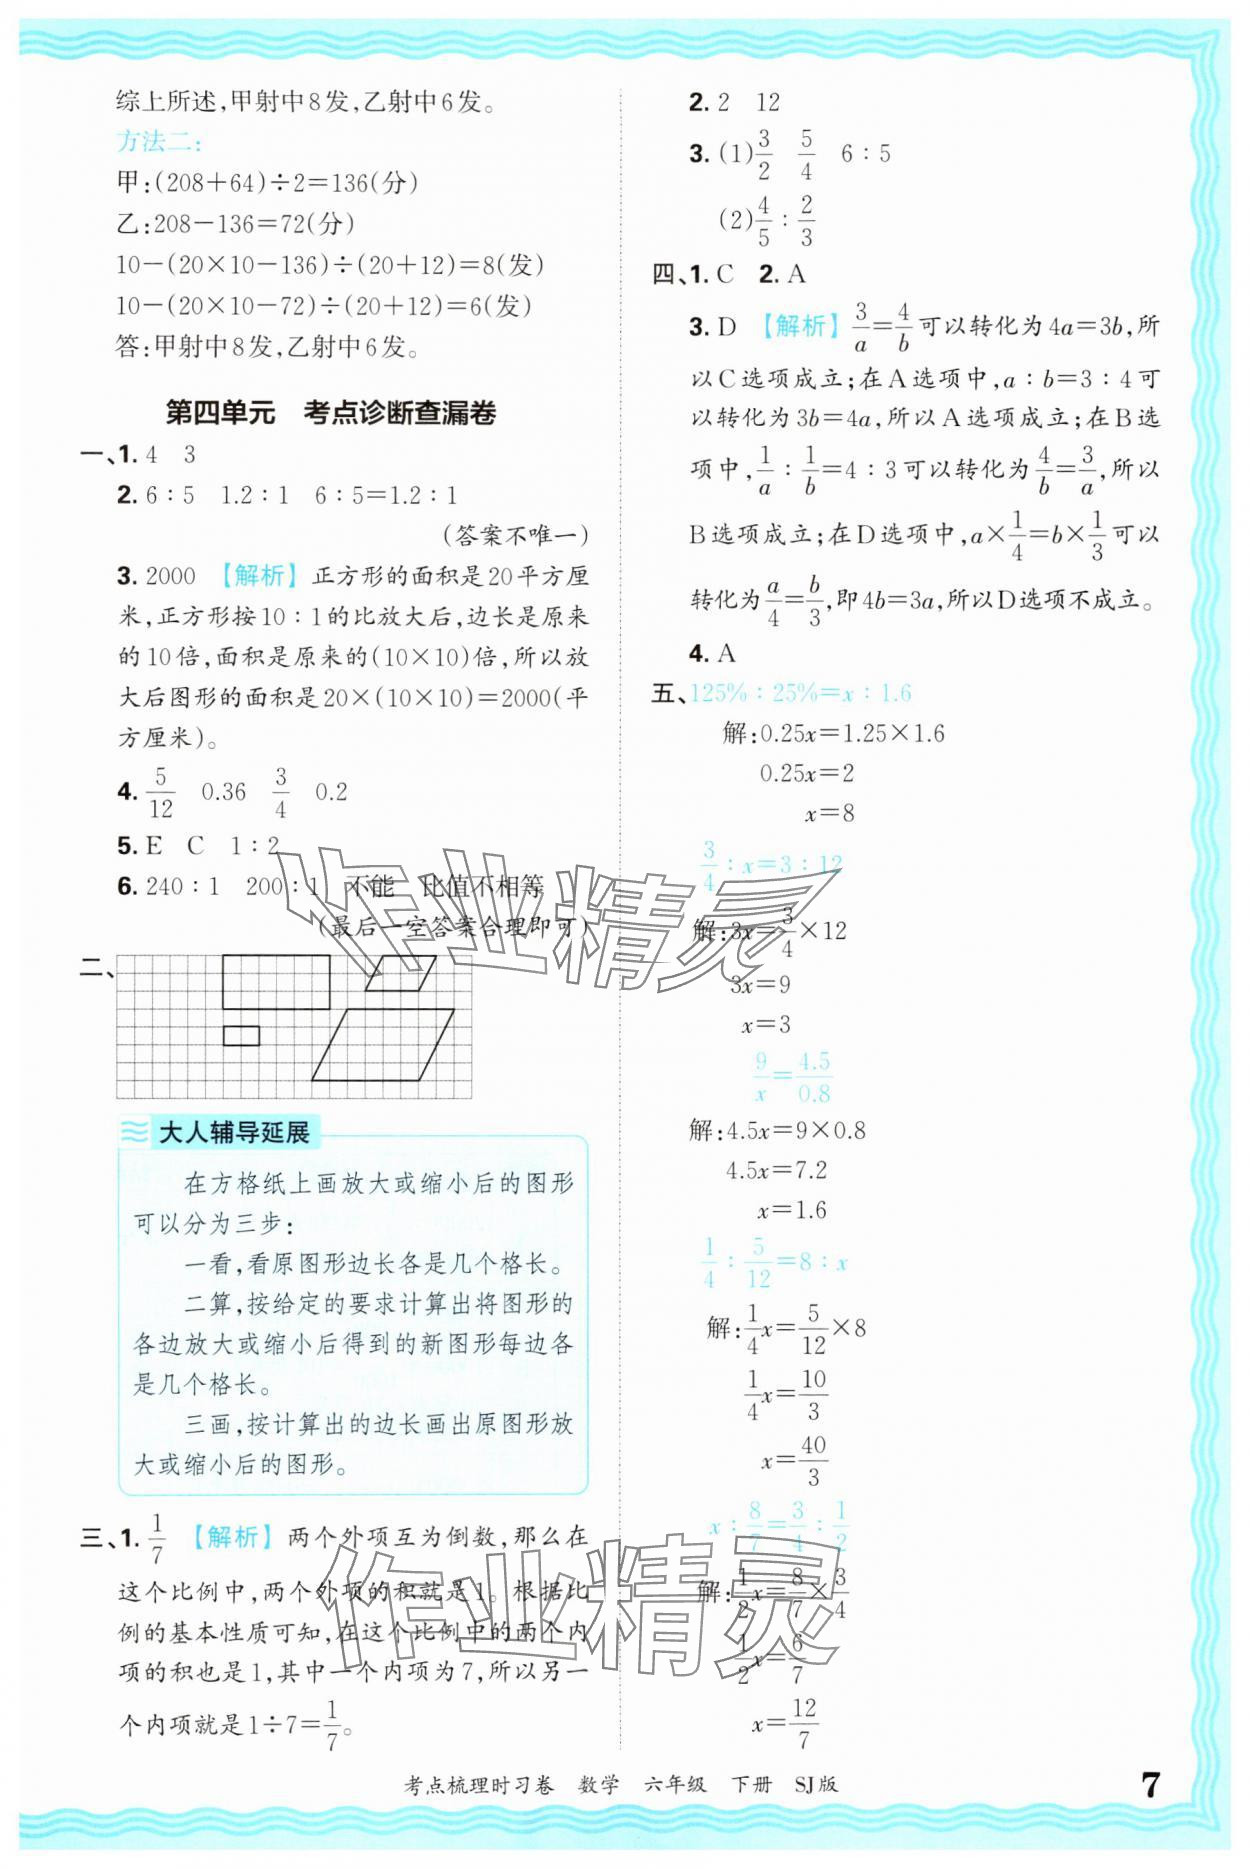 综上所述,甲射中8发,乙射中6发。
方法二:
甲:(208+64)÷2=136(分)
乙:208-136=72(分)
10-(20×10-136)÷(20+12)=8(发)
10-(20×10-72)÷(20+12)=6(发)
答:甲射中8发,乙射中6发。
第四单元 考点诊断查漏卷
一、1. 4 3
2. 6∶5 1.2∶1 6∶5=1.2∶1
(答案不唯一)
3. 2000 【解析】正方形的面积是20平方厘
米,正方形按10∶1的比放大后,边长是原来
的10倍,面积是原来的(10×10)倍,所以放
大后图形的面积是20×(10×10)=2000(平
方厘米)。
4. 5/12 0.36 3/4 0.2
5. E C 1∶2
6. 240∶1 200∶1 不能 比值不相等
(最后一空答案合理即可)
二、
大人辅导延展
在方格纸上画放大或缩小后的图形
可以分为三步:
一看,看原图形边长各是几个格长。
二算,按给定的要求计算出将图形的
各边放大或缩小后得到的新图形每边各
是几个格长。
三画,按计算出的边长画出原图形放
大或缩小后的图形。
三、1. 1/7 【解析】两个外项互为倒数,那么在
这个比例中,两个外项的积就是1。根据比
例的基本性质可知,在这个比例中的两个内
项的积也是1,其中一个内项为7,所以另一
个内项就是1÷7=1/7。
2. 2 12
3. (1)3/2 5/4 6∶5
(2)4/5∶2/3
四、1. C 2. A
3. D 【解析】3/a=4/b可以转化为4a=3b,所
以C选项成立;在A选项中,a∶b=3∶4可
以转化为3b=4a,所以A选项成立;在B选
项中,1/a∶1/b=4∶3可以转化为4/b=3/a,所以
B选项成立;在D选项中,a×1/4=b×1/3可以
转化为a/4=b/3,即4b=3a,所以D选项不成立。
4. A
五、125%∶25%=x∶1.6
解:0.25x=1.25×1.6
0.25x=2
x=8
3/4∶x=3∶12
解:3x=3/4×12
3x=9
x=3
9/x=4.5/0.8
解:4.5x=9×0.8
4.5x=7.2
x=1.6
1/4∶5/12=8∶x
解:1/4x=5/12×8
1/4x=10/3
x=40/3
x∶8/7=3/4∶1/2
解:1/2x=8/7×3/4
1/2x=6/7
x=12/7
作业精灵
作业精灵
考点梳理时习卷 数学 六年级 下册 SJ版
7